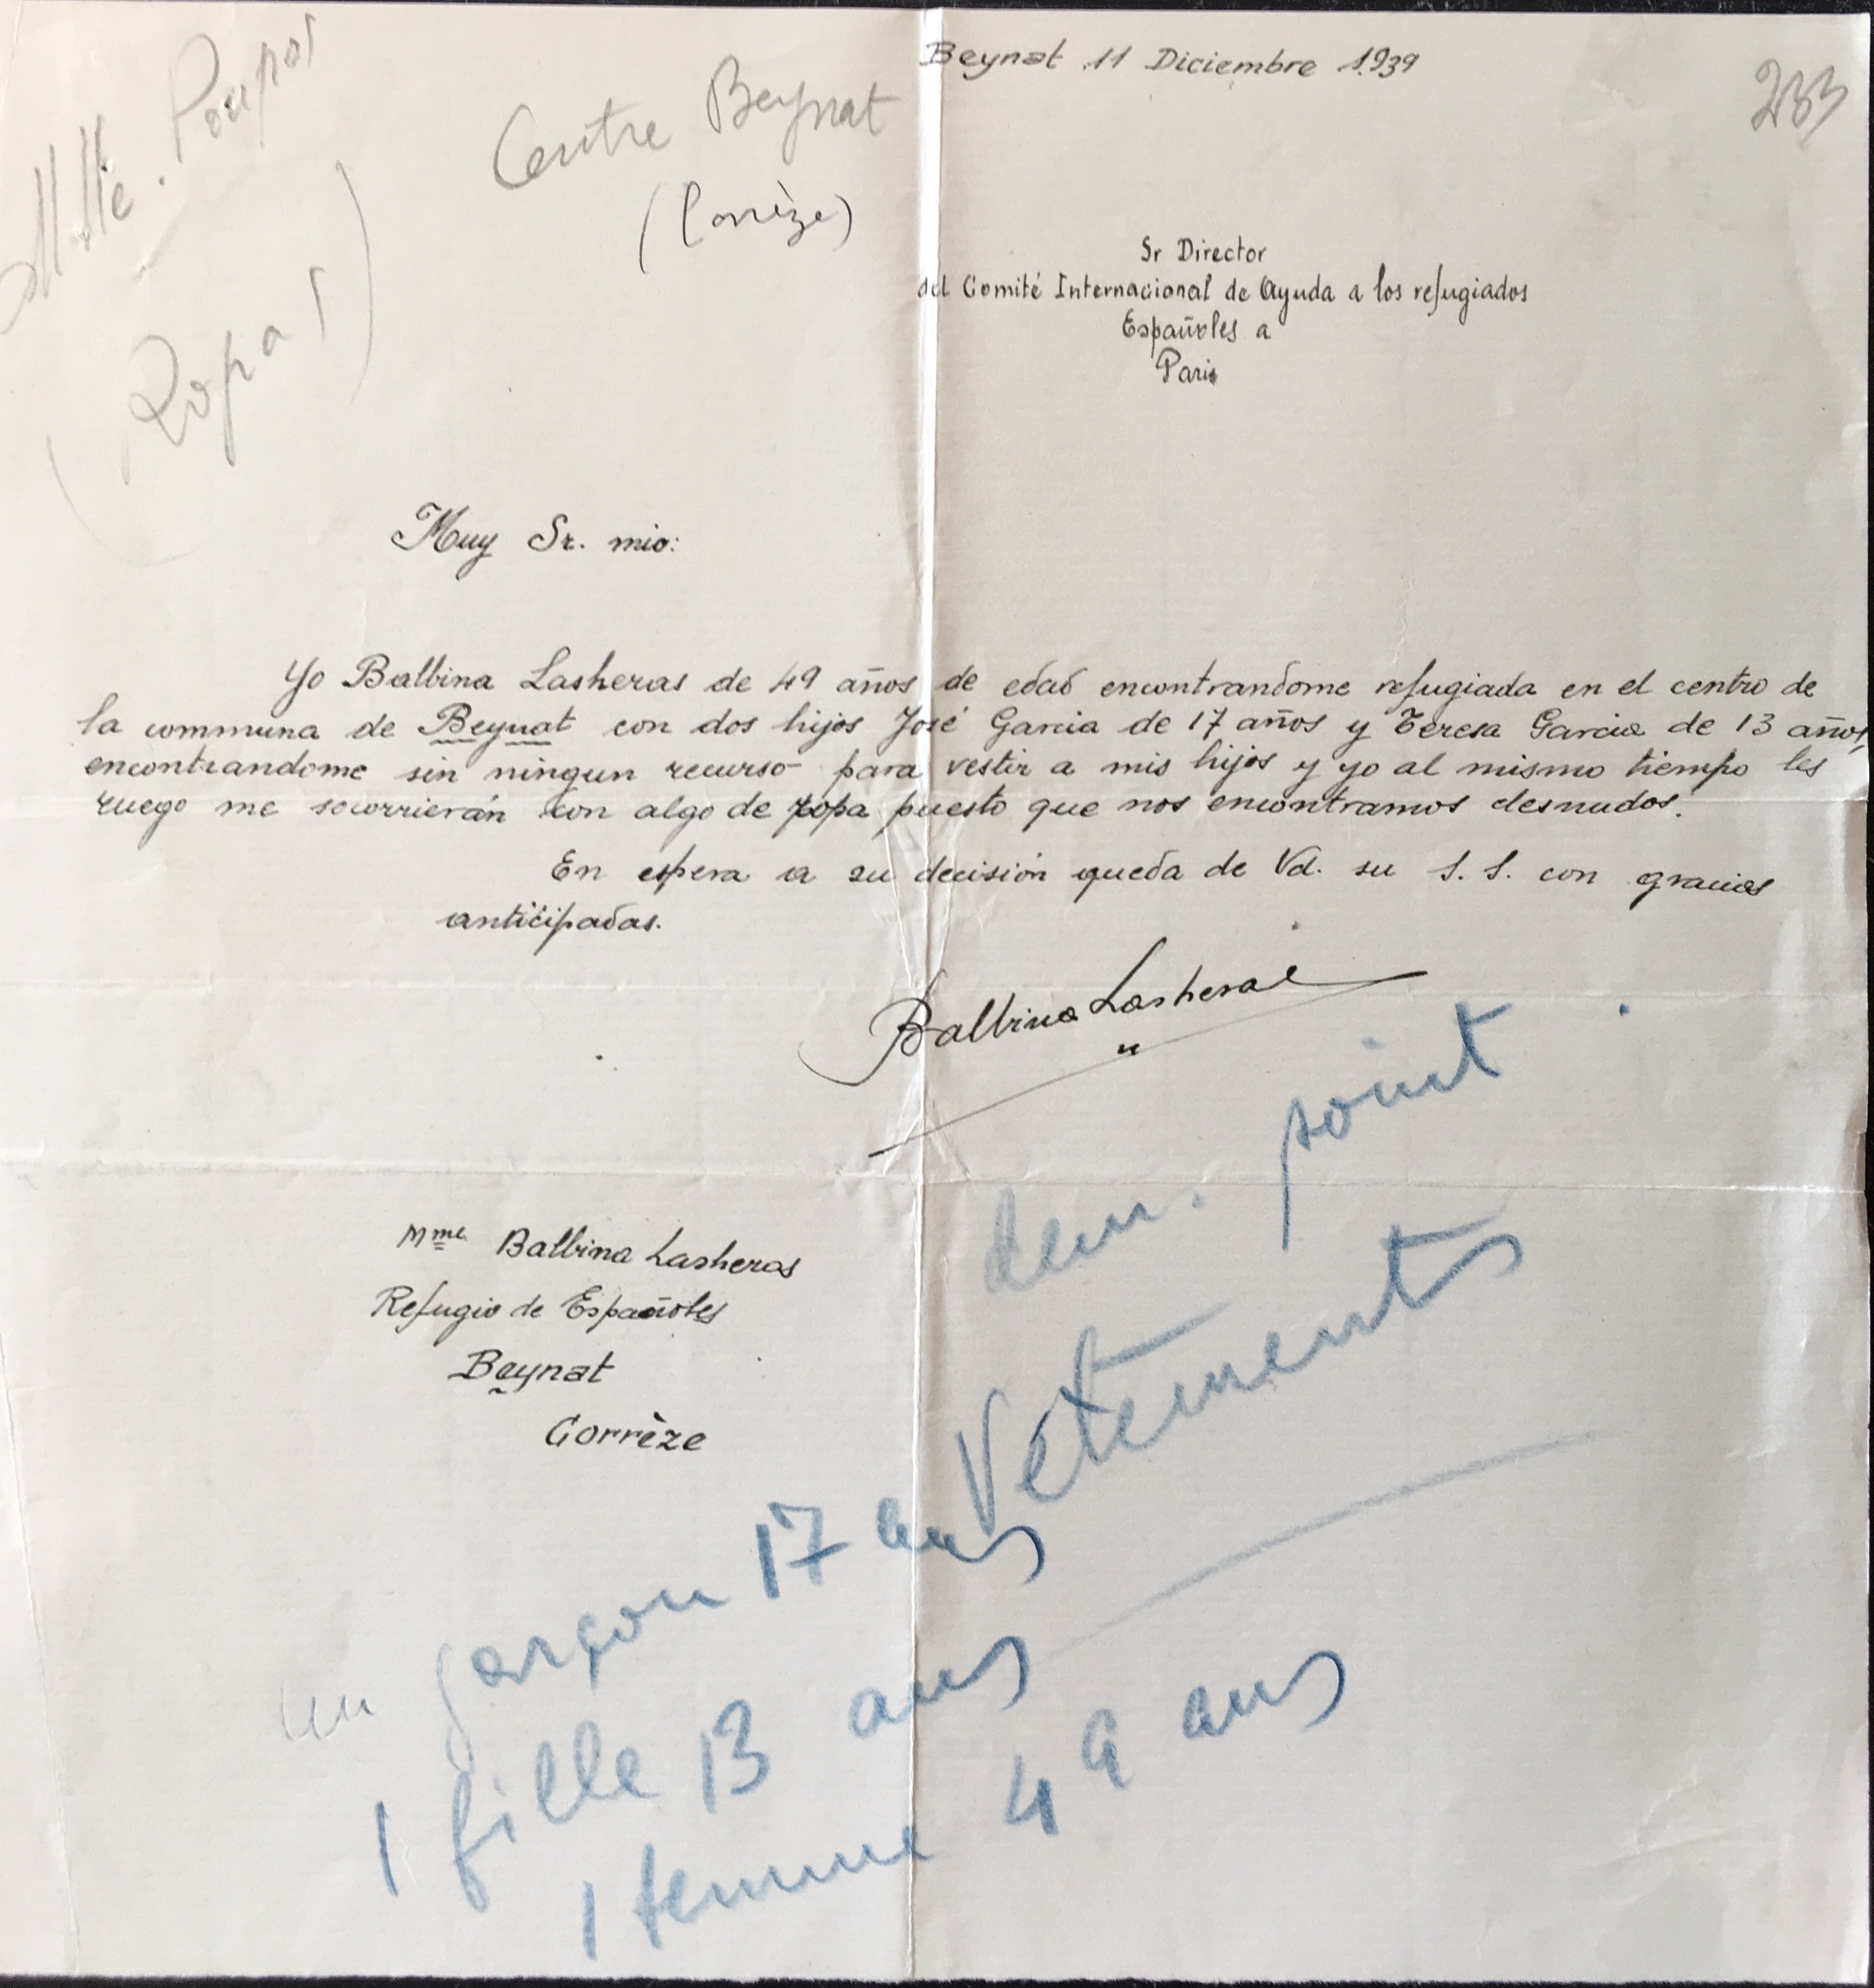 Beynat 11 Diciembre 1939
233
Mlle. Poupos
(Ropas)
Centre Beynat
(Corrèze)
Sr Director
del Comité Internacional de Ayuda a los refugiados
Españoles a
Paris
Muy Sr. mio:
Yo Balbina Lasheras de 49 años de edad encontrandome refugiada en el centro de
la communa de Beynat con dos hijos José Garcia de 17 años y Teresa Garcia de 13 años,
encontrandome sin ningun recurso para vestir a mis hijos y yo al mismo tiempo les
ruego me socorrierán con algo de ropa puesto que nos encontramos desnudos.
En espera a su decisión queda de Vd. su S. S. con gracias
anticipadas.
Balbina Lasheras
Mme Balbina Lasheras
Refugio de Españoles
Beynat
Corrèze
dem. point
Vetements
un garçon 17 ans
1 fille 13 ans
1 femme 49 ans